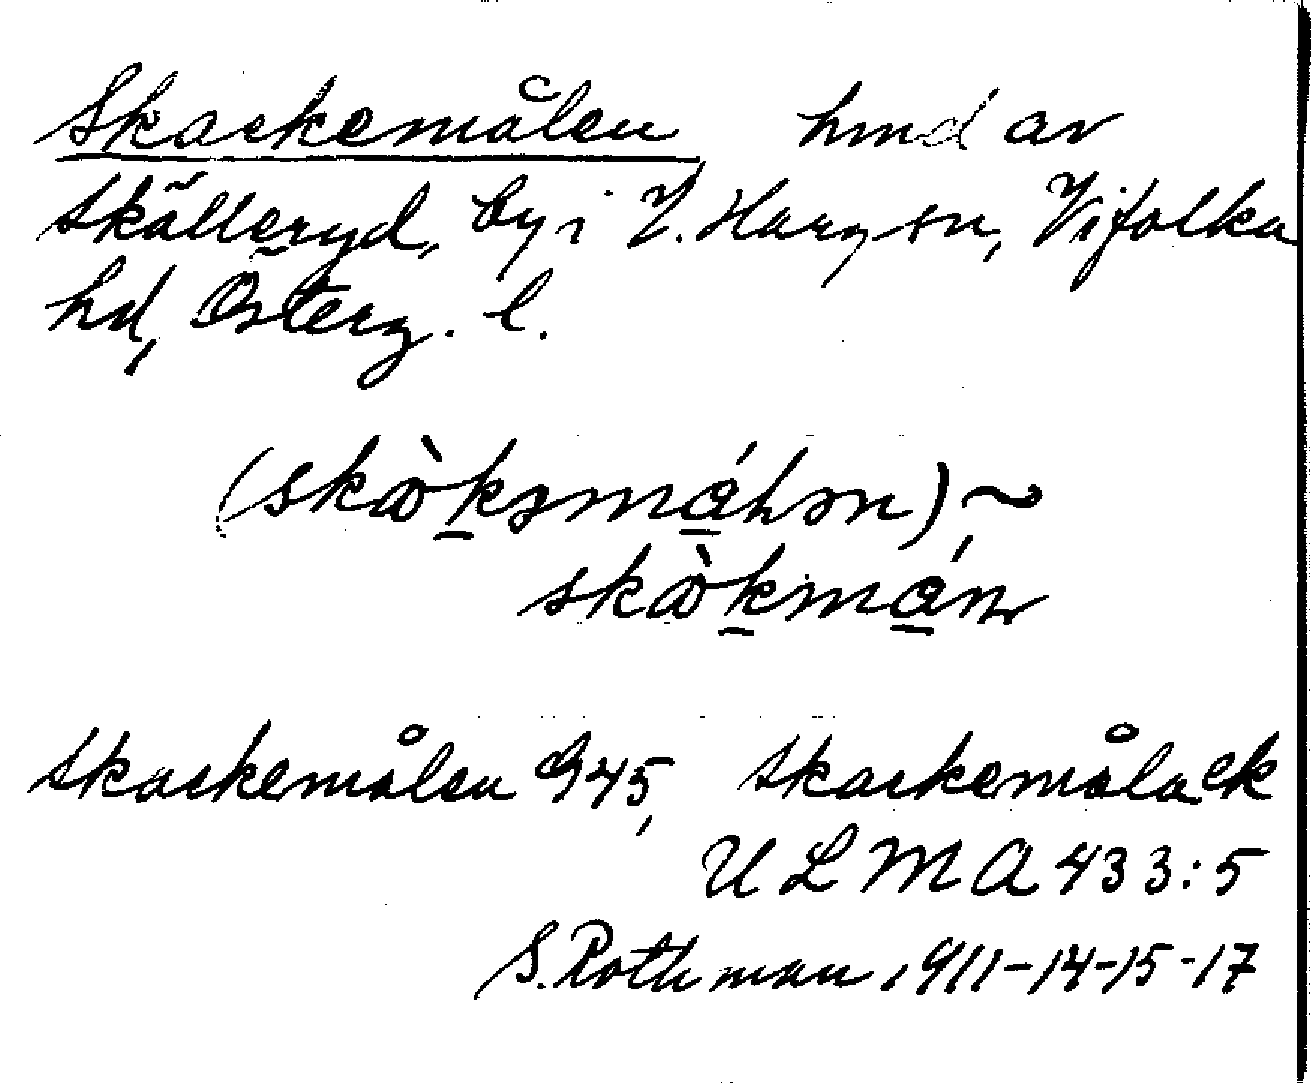 Skackemålen hmd av
Skälleryd, by i V. Harg sn, Vifolka
hd, Österg. l.
(skàksmáhən) ~
skàkmán
Skackemålen G45, Skackemåla ek
ULMA 433:5
S. Rothman 1911-14-15-17